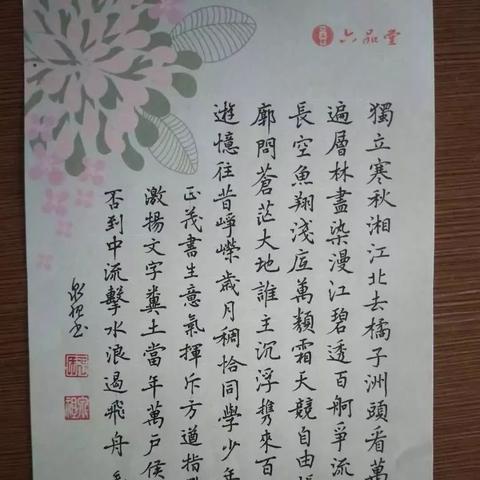 六品堂
獨立寒秋湘江北去橘子洲頭看萬
遍層林盡染漫江碧透百舸爭流
長空魚翔淺底萬類霜天競自由
廓問蒼茫大地誰主沉浮携來百
遊憶往昔崢嶸歲月稠恰同學少年
正茂書生意氣揮斥方遒指
激揚文字糞土當年萬戶侯
否到中流擊水浪遏飛舟